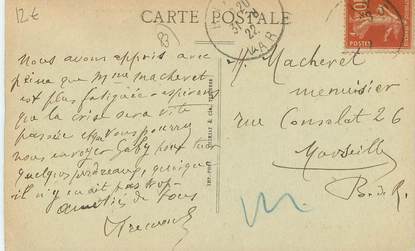 12€
CARTE POSTALE
Nous avons appris avec
peine que Mme Macheret
est plus fatiguée - espérons
que la crise sera vite
passée et que vous pourrez
nous envoyer Gaby pour tuer
quelques perdreaux, quoique
il n'y en ait pas trop.
amitiés de tous
M. Macheret
menuisier
rue Consolat 26
Marseille
B. d. R.